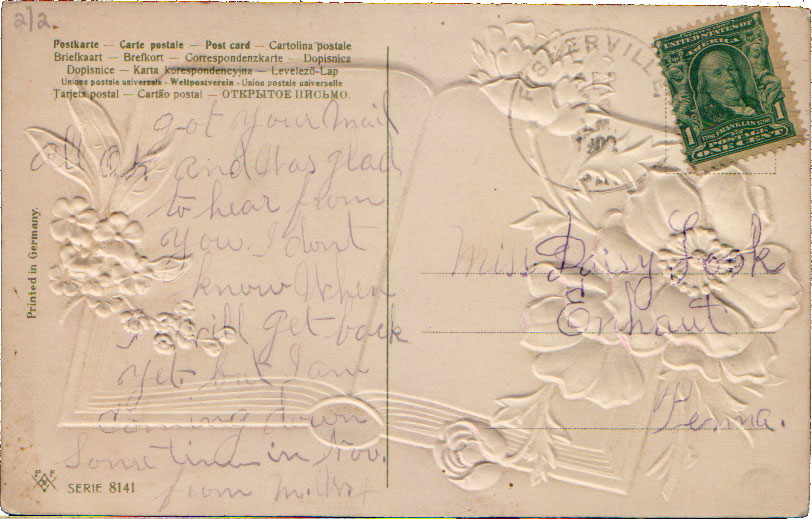 212.
Postkarte — Carte postale — Post card — Cartolina postale
Briefkaart — Brefkort — Correspondenzkarte — Dopisnica
Dopisnice — Karta korespondencyjna — Levelező-Lap
Union postale universelle — Weltpostverein — Union postale universelle
Tarjeta postal — Cartão postal — ОТКРЫТОЕ ПИСЬМО.
got your mail
all OK and was glad
to hear from
you. I dont
know when
I will get back
yet. but I am
Coming down
Sometime in Nov.
from
Printed in Germany.
SERIE 8141
FISHERVILLE
UNITED STATES OF
AMERICA
1 FRANKLIN 1
POSTAGE
ONE CENT
Miss Daisy
Enhaut
Penna.